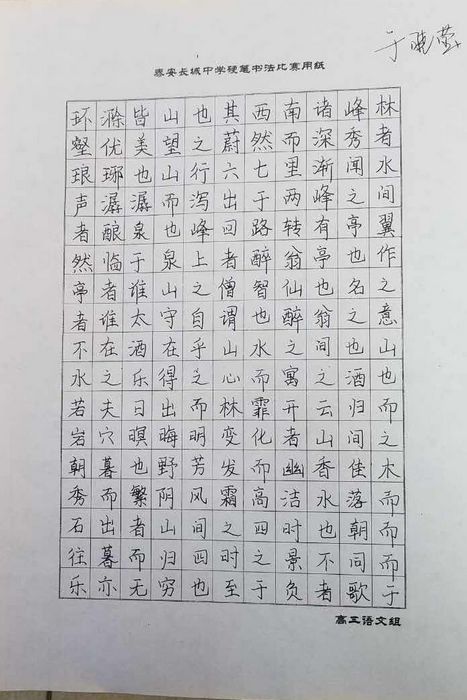 于晓莹
泰安长城中学硬笔书法比赛用纸
环滁皆山也其西南诸峰林
壑优美望之蔚然而深秀者
琅琊也山行六七里渐闻水
声潺潺而泻出于两峰之间
者酿泉也峰回路转有亭翼
然临于泉上者醉翁亭也作
亭者谁山之僧智仙也名之
者谁太守自谓也醉翁之意
不在酒在乎山水之间也山
水之乐得之心而寓之酒也
若夫日出而林霏开云归而
岩穴暝晦明变化者山间之
朝暮也野芳发而幽香佳木
秀而繁阴风霜高洁水落而
石出者山间之四时也朝而
往暮而归四时之景不同而
乐亦无穷也至于负者歌于
高三语文组